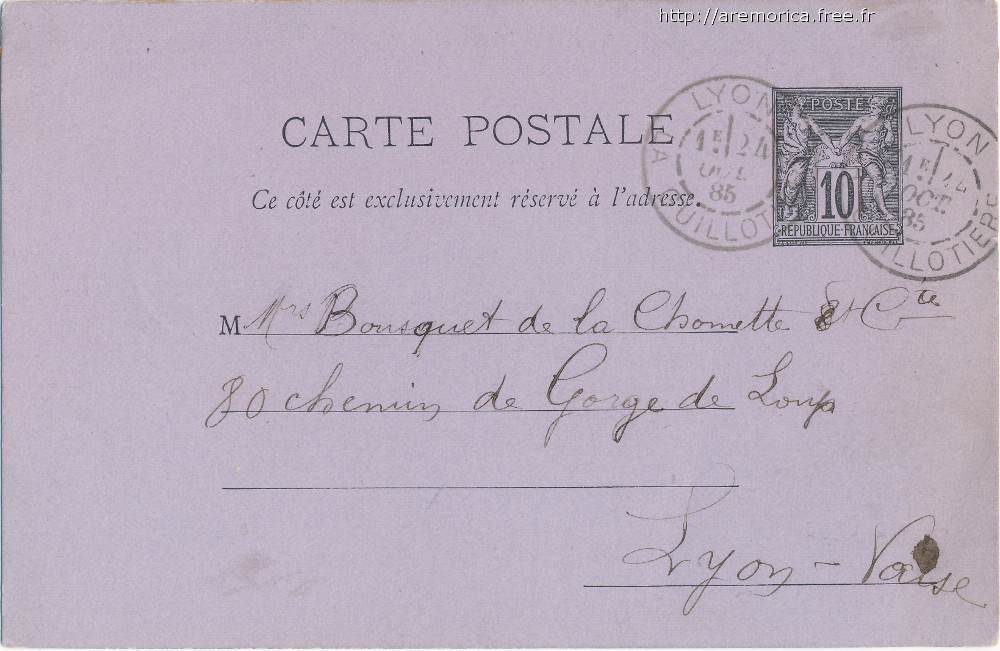 http://aremorica.free.fr
CARTE POSTALE
Ce côté est exclusivement réservé à l'adresse.
POSTE
10
RÉPUBLIQUE FRANÇAISE
LYON
1E/24
OCT.
85
LA GUILLOTIERE
LYON
1E/24
OCT.
85
GUILLOTIERE
M Mrs Bousquet de la Chomette et Cie
80 chemin de Gorge de Loup
Lyon - Vaise